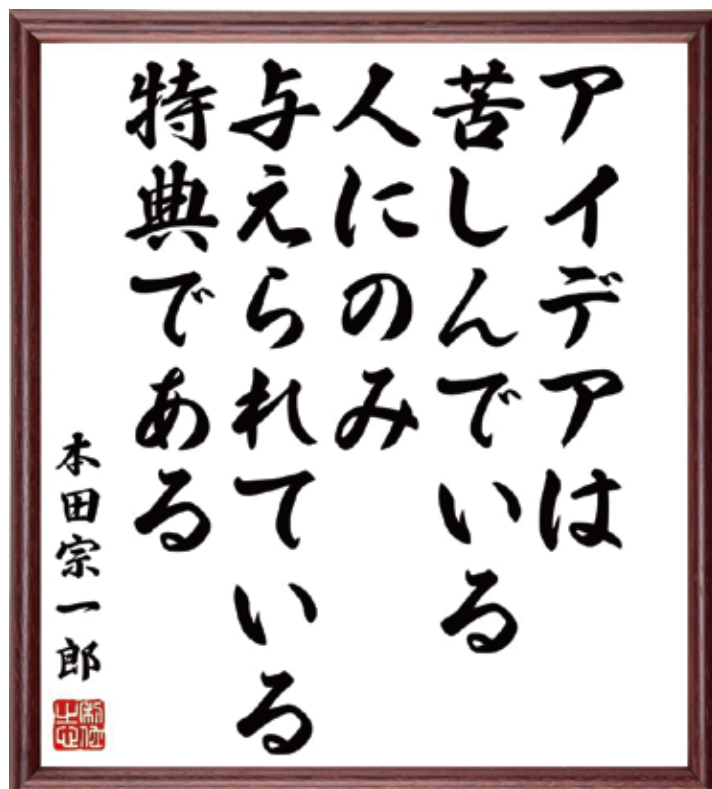 アイデアは
苦しんでいる
人にのみ
与えられている
特典である
本田宗一郎